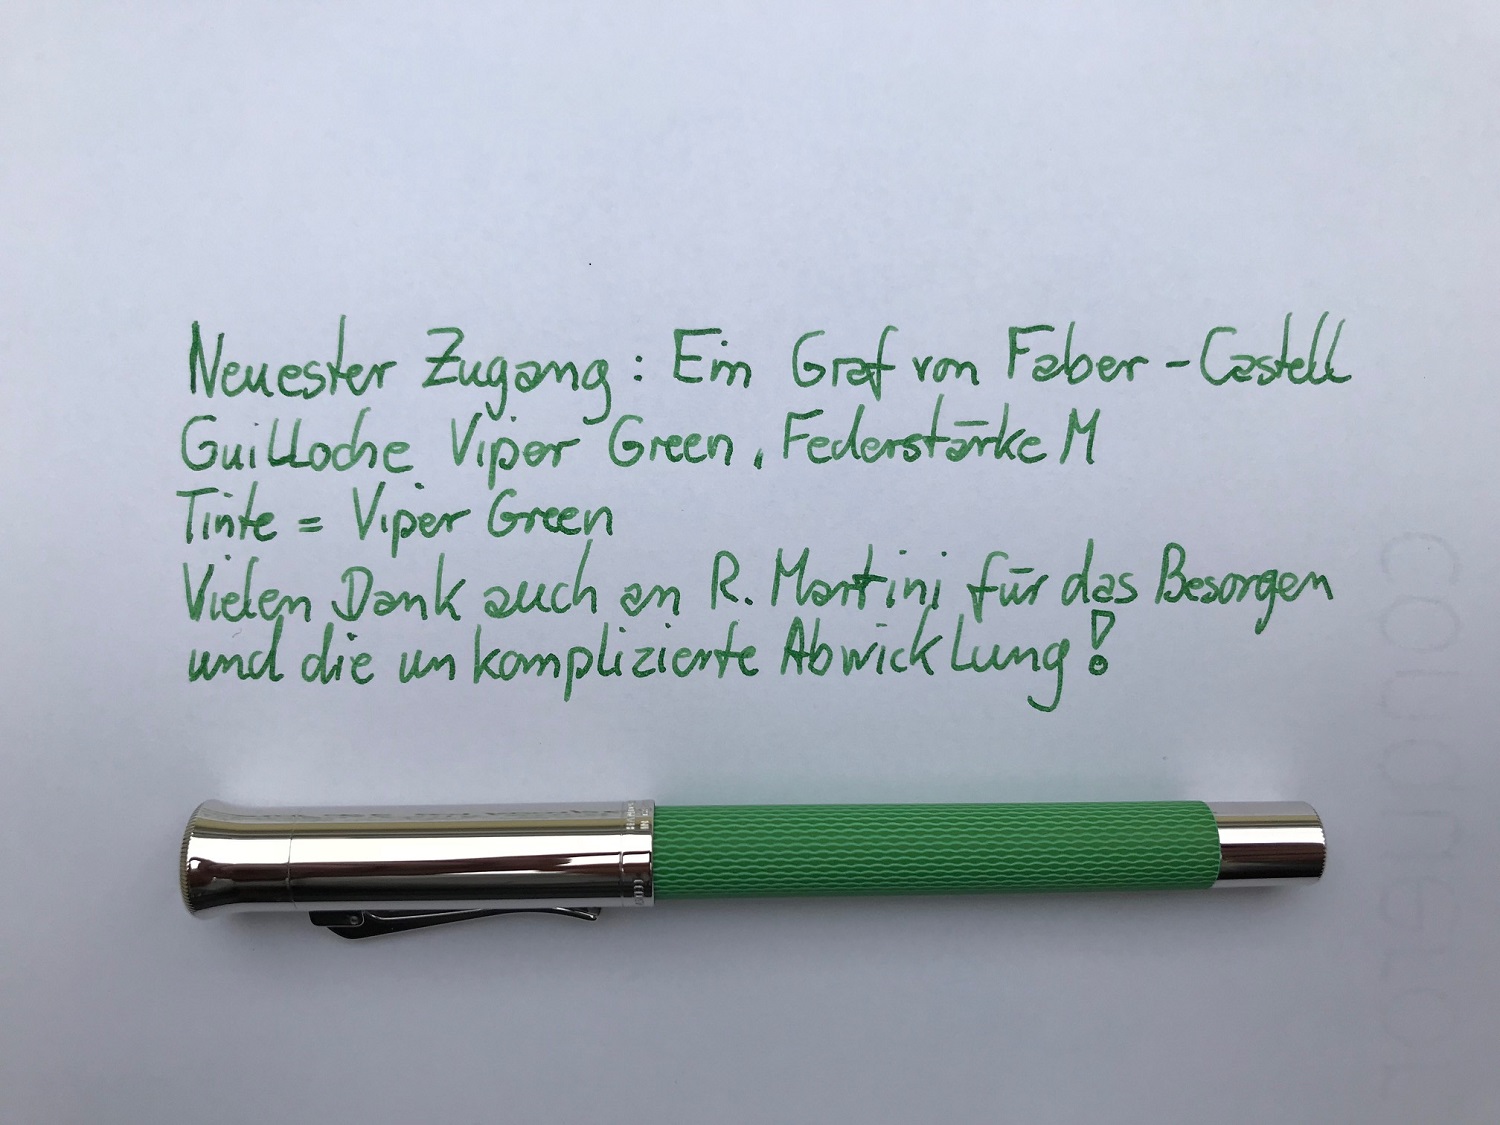 Neuester Zugang: Ein Graf von Faber-Castell
Guilloche Viper Green, Federstärke M
Tinte = Viper Green
Vielen Dank auch an R. Martini für das Besorgen
und die unkomplizierte Abwicklung!